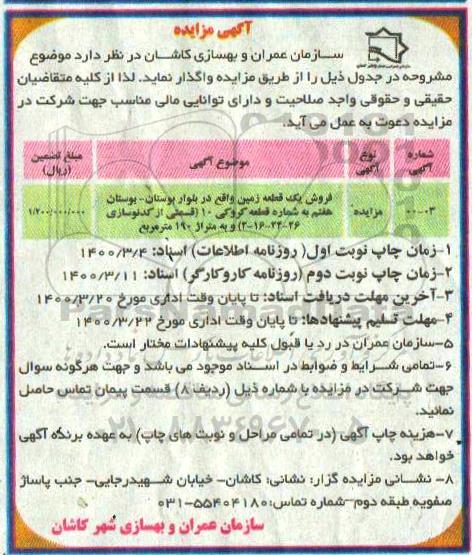 آگهی مزایده
سازمان عمران و بهسازی کاشان در نظر دارد موضوع
مشروحه در جدول ذیل را از طریق مزایده واگذار نماید. لذا از کلیه متقاضیان
حقیقی و حقوقی واجد صلاحیت و دارای توانایی مالی مناسب جهت شرکت در
مزایده دعوت به عمل می آید.
شماره آگهی نوع آگهی موضوع آگهی مبلغ تضمین (ریال)
۰۰-۰۳ مزایده فروش یک قطعه زمین واقع در بلوار بوستان- بوستان
هفتم به شماره قطعه کروکی ۱۰ (قسمتی از کدنوسازی
۲-۱۶-۲۴-۲۶) و به متراژ ۱۹۰ مترمربع ۱/۲۰۰/۰۰۰/۰۰۰
۱-زمان چاپ نوبت اول( روزنامه اطلاعات) اسناد: ۱۴۰۰/۳/۴
۲-زمان چاپ نوبت دوم (روزنامه کاروکارگر) اسناد: ۱۴۰۰/۳/۱۱
۳-آخرین مهلت دریافت اسناد: تا پایان وقت اداری مورخ ۱۴۰۰/۳/۲۰
۴-مهلت تسلیم پیشنهادها: تا پایان وقت اداری مورخ ۱۴۰۰/۳/۲۲
۵-سازمان عمران در رد یا قبول کلیه پیشنهادات مختار است.
۶-تمامی شرایط و ضوابط در اسناد موجود می باشد و جهت هرگونه سوال
جهت شرکت در مزایده با شماره ذیل (ردیف ۸) قسمت پیمان تماس حاصل
نمائید.
۷-هزینه چاپ آگهی (در تمامی مراحل و نوبت های چاپ) به عهده برنده آگهی
خواهد بود.
۸- نشانی مزایده گزار: نشانی: کاشان- خیابان شهیدرجایی- جنب پاساژ
صفویه طبقه دوم-شماره تماس: ۵۵۴۰۴۱۸۰-۰۳۱
سازمان عمران و بهسازی شهر کاشان